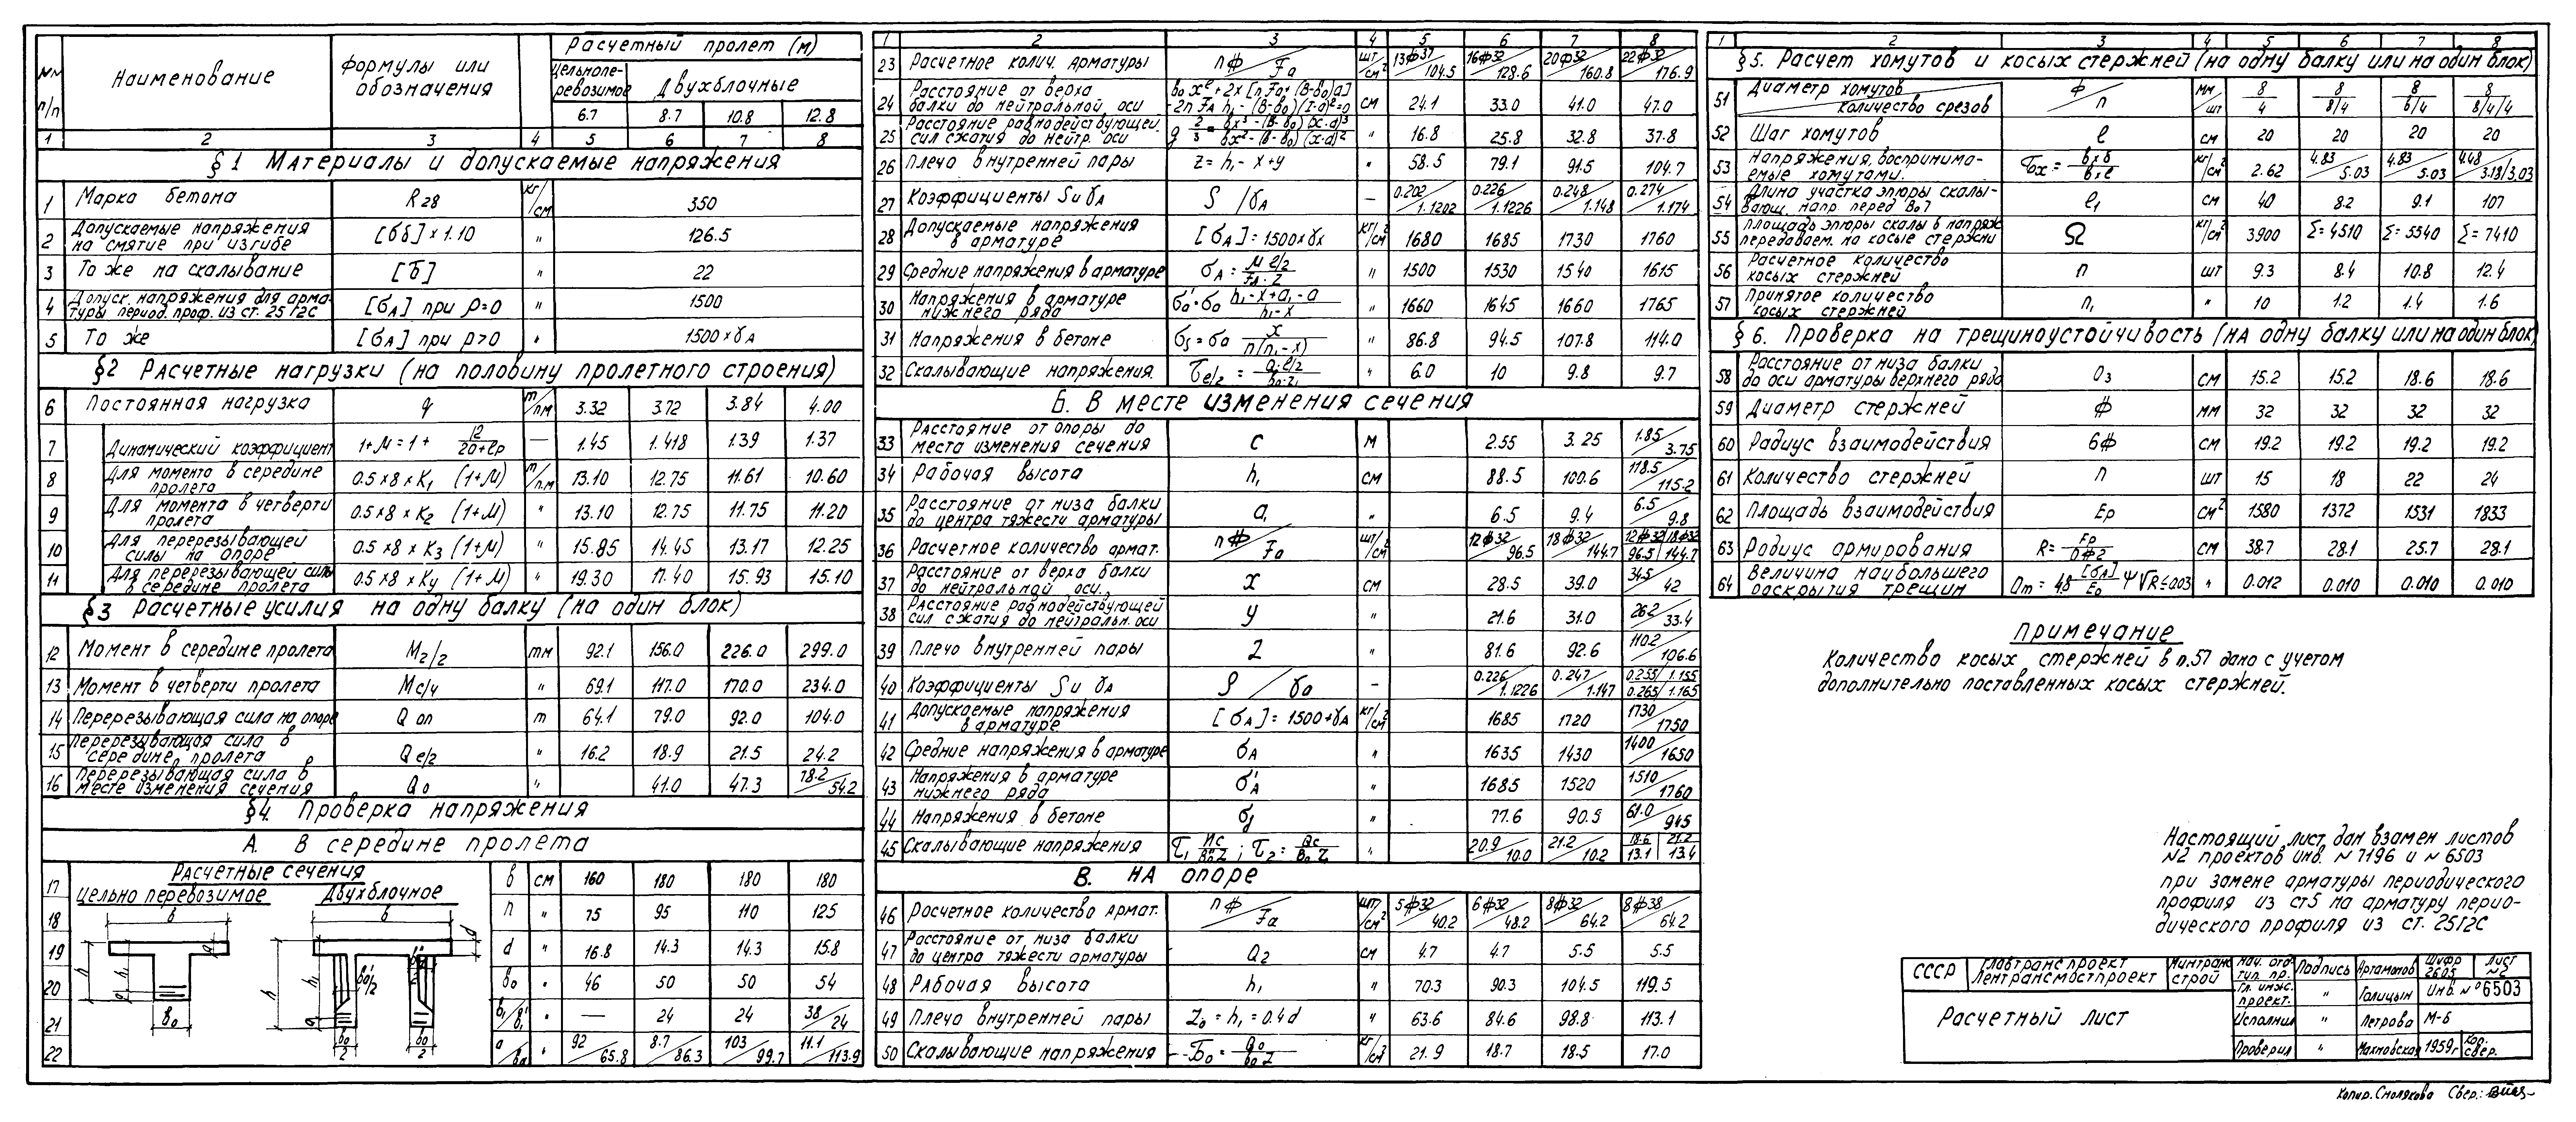 NN п/п | Наименование | Формулы или обозначения | | Расчетный пролет (м)
Цельнопе-ревозимое | Двухблочные
6.7 | 8.7 | 10.8 | 12.8
1 | 2 | 3 | 4 | 5 | 6 | 7 | 8
§1 Материалы и допускаемые напряжения
1 | Марка бетона | R28 | кг/см | 350
2 | Допускаемые напряжения на смятие при изгибе | [бб]×1.10 | " | 126.5
3 | То же на скалывание | [б] | " | 22
4 | Допуск. напряжения для арма-туры период. проф. из ст. 25Г2С | [бА] при ρ=0 | " | 1500
5 | То же | [бА] при ρ>0 | " | 1500×γА
§2 Расчетные нагрузки (на половину пролетного строения)
6 | Постоянная нагрузка | q | т/пм | 3.32 | 3.72 | 3.84 | 4.00
7 | Динамический коэффициент | 1+М=1+ 12/20+ер | — | 1.45 | 1.418 | 1.39 | 1.37
8 | Для момента в середине пролета | 0.5×8×K1 (1+М) | т/п.м | 13.10 | 12.75 | 11.61 | 10.60
9 | Для момента в четверти пролета | 0.5×8×K2 (1+М) | " | 13.10 | 12.75 | 11.75 | 11.20
10 | Для перерезывающей силы на опоре | 0.5×8×K3 (1+М) | " | 15.85 | 14.45 | 13.17 | 12.25
11 | Для перерезывающей силы в середине пролета | 0.5×8×Kу (1+М) | " | 19.30 | 17.40 | 15.93 | 15.10
§3 Расчетные усилия на одну балку (на один блок)
12 | Момент в середине пролета | М2/2 | тм | 92.1 | 156.0 | 226.0 | 299.0
13 | Момент в четверти пролета | Мс/ч | " | 69.1 | 117.0 | 170.0 | 234.0
14 | Перерезывающая сила на опоре | Q оп | т | 64.1 | 79.0 | 92.0 | 104.0
15 | Перерезывающая сила в середине пролета | Q е/2 | " | 16.2 | 18.9 | 21.5 | 24.2
16 | Перерезывающая сила в месте изменения сечения | Qо | " | | 41.0 | 47.3 | 78.2/54.2
§4. Проверка напряжения
А. В середине пролета
Расчетные сечения
Цельно перевозимое Двухблочное
17 | в | см | 160 | 180 | 180 | 180
18 | h | " | 75 | 95 | 110 | 125
19 | d | " | 16.8 | 14.3 | 14.3 | 15.8
20 | во | " | 46 | 50 | 50 | 54
21 | в1/в1' | " | — | 24 | 24 | 38/24
22 | а | " | 92/65.8 | 8.7/86.3 | 103/99.7 | 11.1/113.9
1 | 2 | 3 | 4 | 5 | 6 | 7 | 8
23 | Расчетное колич. арматуры | nф/Fа | шт/см² | 13ф37/104.5 | 16ф32/128.6 | 20ф32/160.8 | 22ф32/176.9
24 | Расстояние от верха балки до нейтральной оси | | см | 24.1 | 33.0 | 41.0 | 47.0
25 | Расстояние равнодействующей сил сжатия до нейтр. оси | | " | 16.8 | 25.8 | 32.8 | 37.8
26 | Плечо внутренней пары | Z=h1-x+y | " | 58.5 | 79.1 | 91.5 | 104.7
27 | Коэффициенты ρ и γА | ρ/γА | — | 0.202/1.1202 | 0.226/1.1226 | 0.248/1.148 | 0.274/1.174
28 | Допускаемые напряжения в арматуре | [бА]=1500×γх | кг/см² | 1680 | 1685 | 1730 | 1760
29 | Средние напряжения в арматуре | бА= М е/2 / FА·Z | " | 1500 | 1530 | 1540 | 1615
30 | Напряжения в арматуре нижнего ряда | | " | 1660 | 1645 | 1660 | 1765
31 | Напряжения в бетоне | | " | 86.8 | 94.5 | 107.8 | 114.0
32 | Скалывающие напряжения. | | " | 6.0 | 10 | 9.8 | 9.7
Б. В месте изменения сечения
33 | Расстояние от опоры до места изменения сечения | С | м | | 2.55 | 3.25 | 1.85/3.75
34 | Рабочая высота | h1 | см | | 88.5 | 100.6 | 118.5/115.2
35 | Расстояние от низа балки до центра тяжести арматуры | а1 | " | | 6.5 | 9.4 | 6.5/9.8
36 | Расчетное количество армат. | nф/Fа | шт/см | | 12ф32/96.5 | 18ф32/144.7 | 12ф32/96.5 | 18ф32/144.7
37 | Расстояние от верха балки до нейтральной оси. | X | см | | 28.5 | 39.0 | 34.5/42
38 | Расстояние равнодействующей сил сжатия до нейтральн. оси | y | " | | 21.6 | 31.0 | 26.2/33.4
39 | Плечо внутренней пары | Z | " | | 81.6 | 92.6 | 110.2/106.6
40 | Коэффициенты ρ и γА | ρ/γо | — | | 0.226/1.1226 | 0.247/1.147 | 0.255/1.155 0.265/1.165
41 | Допускаемые напряжения в арматуре | [бА]=1500+γА | кг/см² | | 1685 | 1720 | 1730/1750
42 | Средние напряжения в арматуре | бА | " | | 1635 | 1430 | 1400/1650
43 | Напряжения в арматуре нижнего ряда | б'А | " | | 1685 | 1520 | 1510/1760
44 | Напряжения в бетоне | | " | | 77.6 | 90.5 | 61.0/94.5
45 | Скалывающие напряжения | | " | | 20.9/10.0 | 21.2/10.2 | 18.6/13.1 | 21.2/13.4
В. На опоре
46 | Расчетное количество армат. | nф/Fа | шт/см² | 5ф32/40.2 | 6ф32/48.2 | 8ф32/64.2 | 8ф38/64.2
47 | Расстояние от низа балки до центра тяжести арматуры | Q2 | см | 4.7 | 4.7 | 5.5 | 5.5
48 | Рабочая высота | h1 | " | 70.3 | 90.3 | 104.5 | 119.5
49 | Плечо внутренней пары | Zо=h1=0.4d | " | 63.6 | 84.6 | 98.8 | 113.1
50 | Скалывающие напряжения | | кг/см² | 21.9 | 18.7 | 18.5 | 17.0
1 | 2 | 3 | 4 | 5 | 6 | 7 | 8
§5. Расчет хомутов и косых стержней (на одну балку или на один блок)
51 | Диаметр хомутов / количество срезов | ф/n | мм/шт | 8/4 | 8/8/4 | 8/6/4 | 8/8/4/4
52 | Шаг хомутов | е | см | 20 | 20 | 20 | 20
53 | Напряжения, воспринима-емые хомутами. | | кг/см² | 2.62 | 4.83/5.03 | 4.83/5.03 | 4.48/3.18/3.03
54 | Длина участка эпюры скалы-вающ. напр. перед | е1 | см | 40 | 8.2 | 9.1 | 107
55 | Площадь эпюры скалыв напряж передаваем. на косые стержни | Ω | кг/см² | 3900 | Σ=4510 | Σ=5540 | Σ=7410
56 | Расчетное количество косых стержней | n | шт | 9.3 | 8.4 | 10.8 | 12.4
57 | Принятое количество косых стержней | n1 | " | 10 | 1.2 | 1.4 | 1.6
§6. Проверка на трещиноустойчивость (на одну балку или на один блок)
58 | Расстояние от низа балки до оси арматуры верхнего ряда | О3 | см | 15.2 | 15.2 | 18.6 | 18.6
59 | Диаметр стержней | ф | мм | 32 | 32 | 32 | 32
60 | Радиус взаимодействия | 6ф | см | 19.2 | 19.2 | 19.2 | 19.2
61 | Количество стержней | n | шт | 15 | 18 | 22 | 24
62 | Площадь взаимодействия | Ер | см² | 1580 | 1372 | 1531 | 1833
63 | Радиус армирования | | см | 38.7 | 28.1 | 25.7 | 28.1
64 | Величина наибольшего раскрытия трещин | | " | 0.012 | 0.010 | 0.010 | 0.010
Примечание
Количество косых стержней в п.57 дано с учетом
дополнительно поставленных косых стержней.
Настоящий лист дан взамен листов
№2 проектов инв. №7196 и №6503
при замене арматуры периодического
профиля из ст5 на арматуру перио-
дического профиля из ст. 25Г2С
СССР | Главтранспроект Лентрансмостпроект | Минтранс строй | Нач. отд. тип. пр. | Подпись | Артамонов | Шифр 2605 | Лист №2
Гл. инж. проект. | " | Голицын | Инв. №6503
Расчетный лист | Исполнил | " | Петрова | М-б
Проверил | " | Махновская | 1959г | Кор. свер.
Копир. Смолякова Свер.: